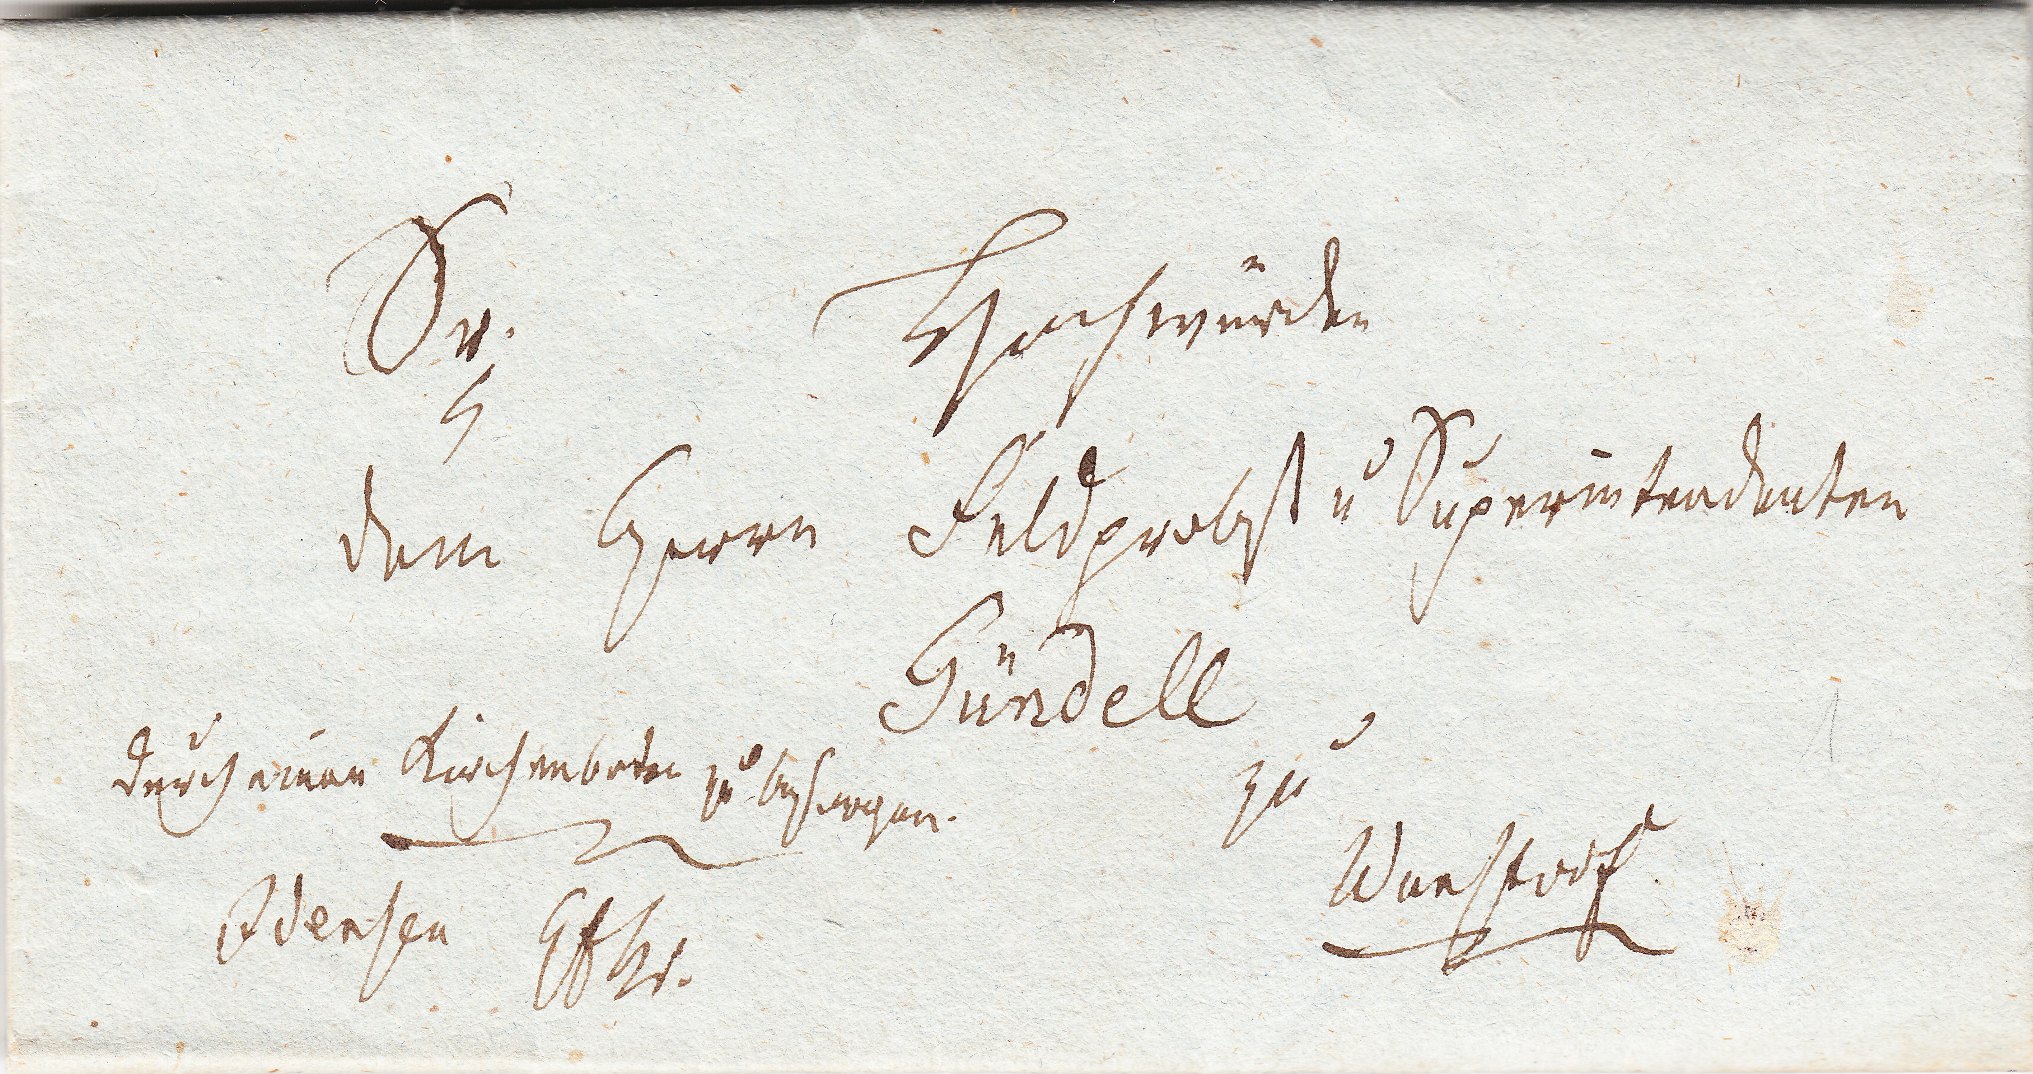 Sr. Hochwürden
dem Herrn Feldprobst u Superintendenten
Gündell
zu
Wunstorf
durch einen Kirchenboten zu besorgen.
Idensen